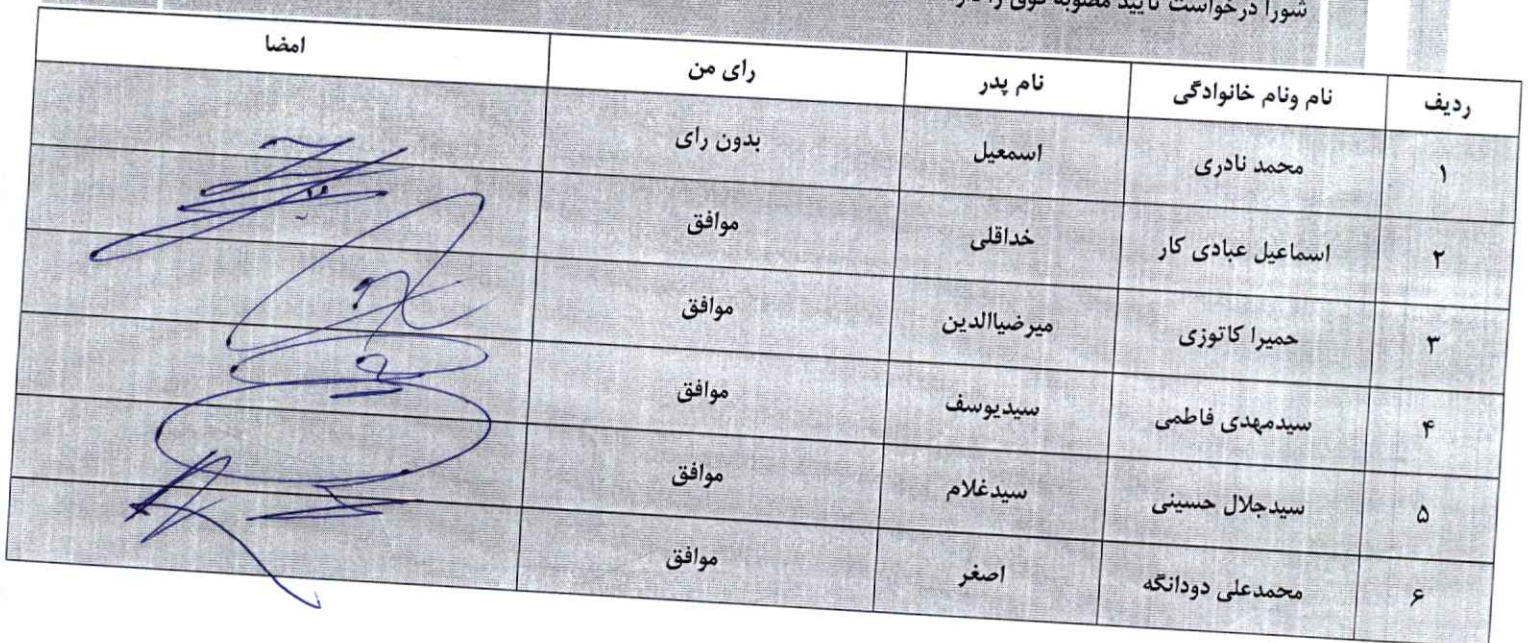 شورا درخواست تایید مصوبه فوق را
ردیف نام ونام خانوادگی نام پدر رای من امضا
۱ محمد نادری اسمعیل بدون رای
۲ اسماعیل عبادی کار خداقلی موافق
۳ حمیرا کاتوزی میرضیاالدین موافق
۴ سیدمهدی فاطمی سیدیوسف موافق
۵ سیدجلال حسینی سیدغلام موافق
۶ محمدعلی دودانگه اصغر موافق